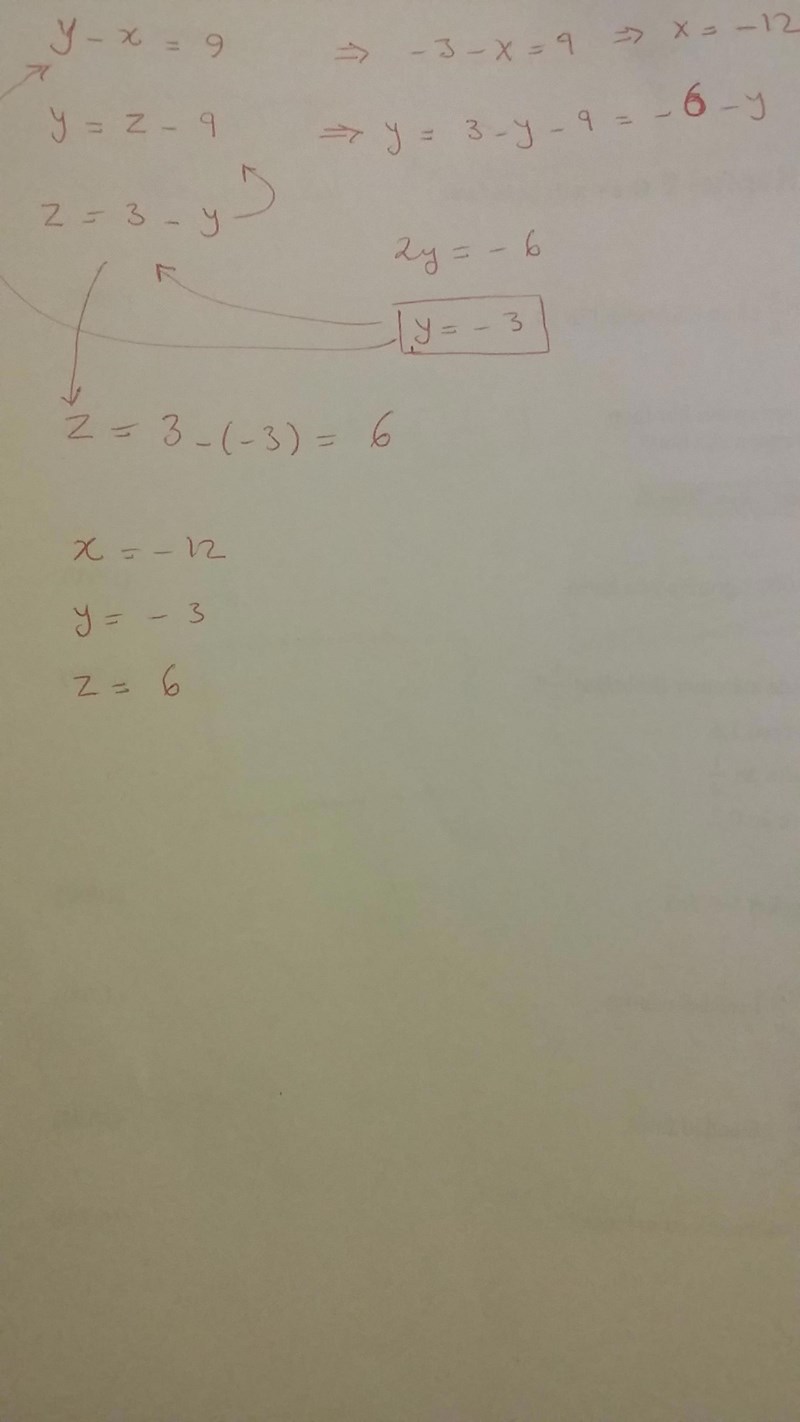 y - x = 9 ⇒ -3 - x = 9 ⇒ x = -12
y = z - 9 ⇒ y = 3 - y - 9 = -6 - y
z = 3 - y
2y = -6
y = -3
z = 3 - (-3) = 6
x = -12
y = -3
z = 6